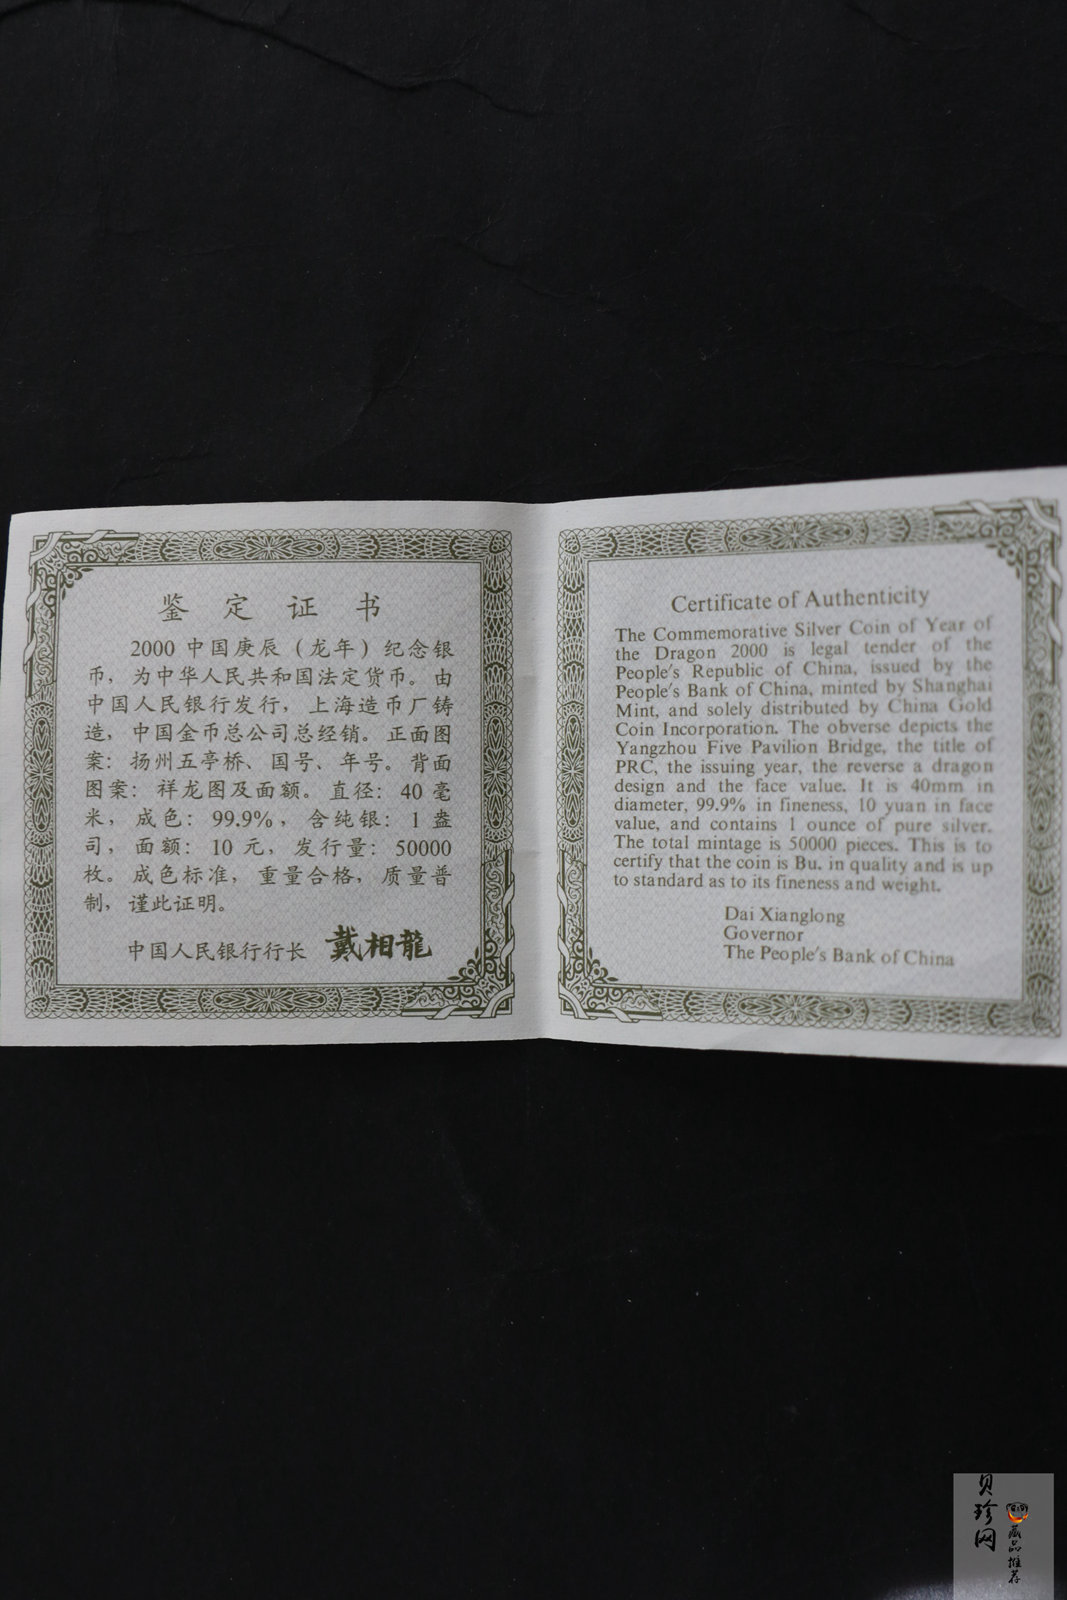 鉴 定 证 书
2000 中国庚辰（龙年）纪念银
币，为中华人民共和国法定货币。由
中国人民银行发行，上海造币厂铸
造，中国金币总公司总经销。正面图
案：扬州五亭桥、国号、年号。背面
图案：祥龙图及面额。直径：40 毫
米，成色：99.9%，含纯银：1 盎
司，面额：10 元，发行量：50000
枚。成色标准，重量合格，质量普
制，谨此证明。
中国人民银行行长 戴相龍
Certificate of Authenticity
The Commemorative Silver Coin of Year of
the Dragon 2000 is legal tender of the
People's Republic of China, issued by the
People's Bank of China, minted by Shanghai
Mint, and solely distributed by China Gold
Coin Incorporation. The obverse depicts the
Yangzhou Five Pavilion Bridge, the title of
PRC, the issuing year, the reverse a dragon
design and the face value. It is 40mm in
diameter, 99.9% in fineness, 10 yuan in face
value, and contains 1 ounce of pure silver.
The total mintage is 50000 pieces. This is to
certify that the coin is Bu. in quality and is up
to standard as to its fineness and weight.
Dai Xianglong
Governor
The People's Bank of China
贝珍网
藏品推荐